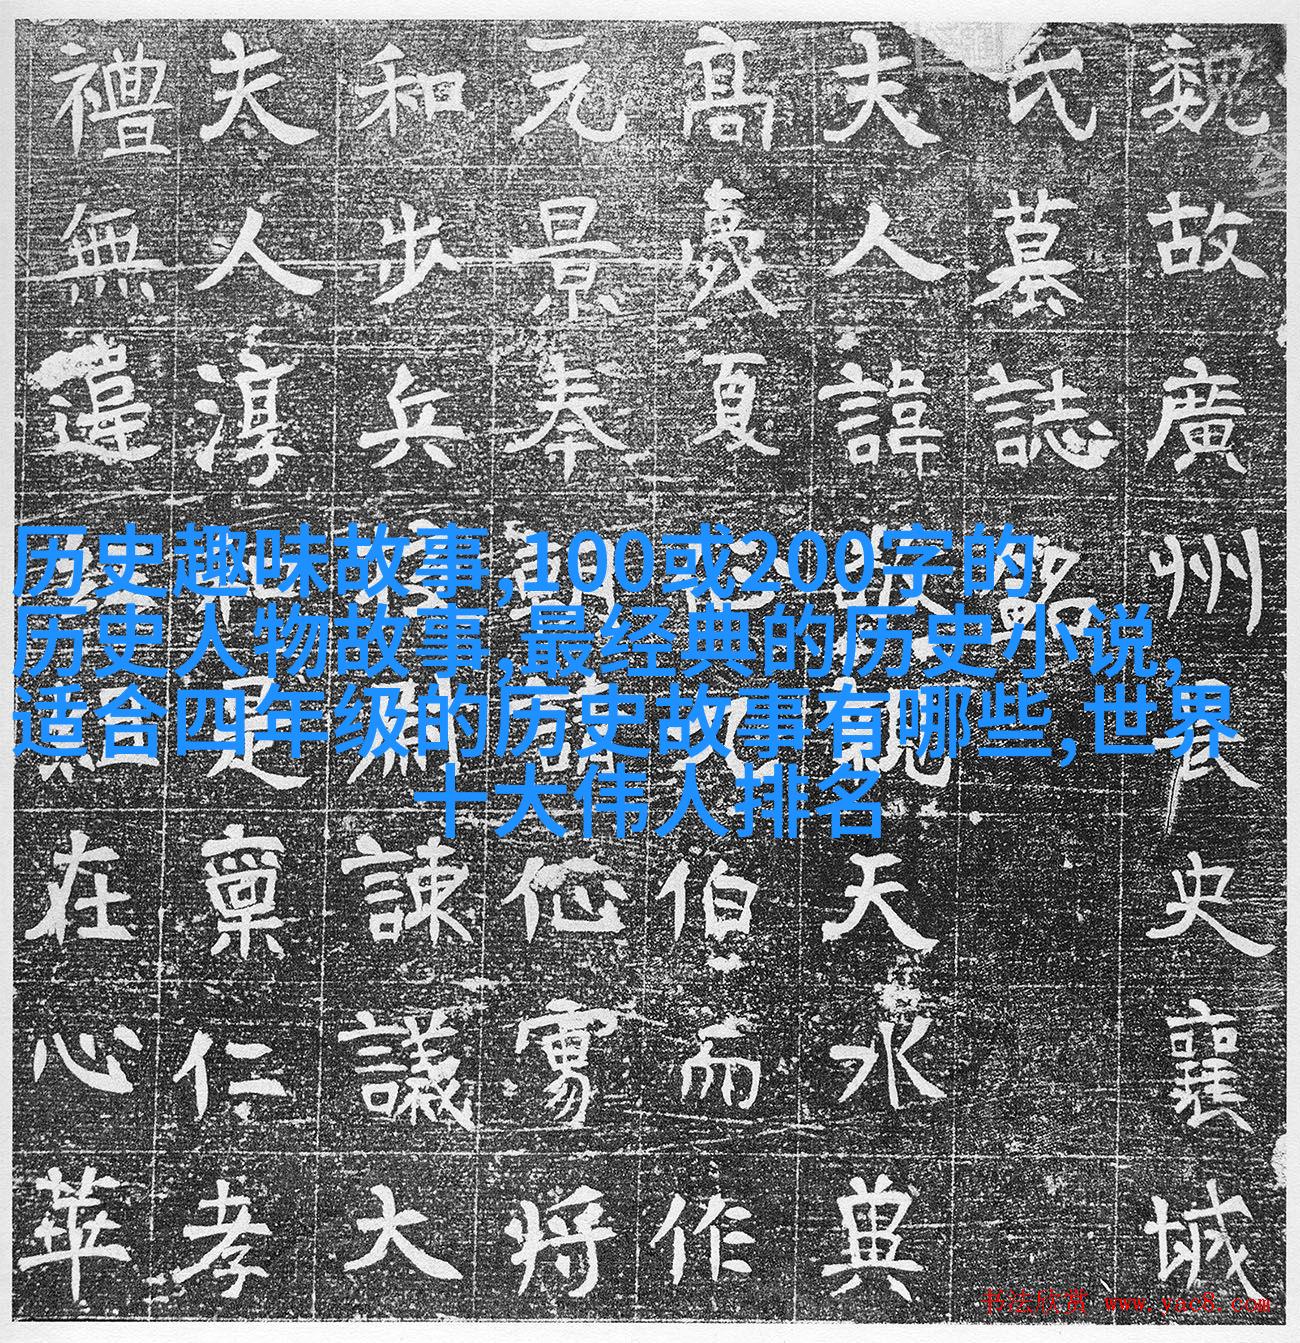 历史趣味故事,100或200字的
历史人物故事,最经典的历史小说,
适合四年级的历史故事有哪些,世界
十大伟人排名
魏故廣州長史襄城
氏墓誌銘
夫人諱 天水
高 夏 伯而作
元景奉朝請 将
和步兵校尉諫議大
夫人淳和是稟仁孝
禮無違 在心華
书法欣赏 www.yac8.com